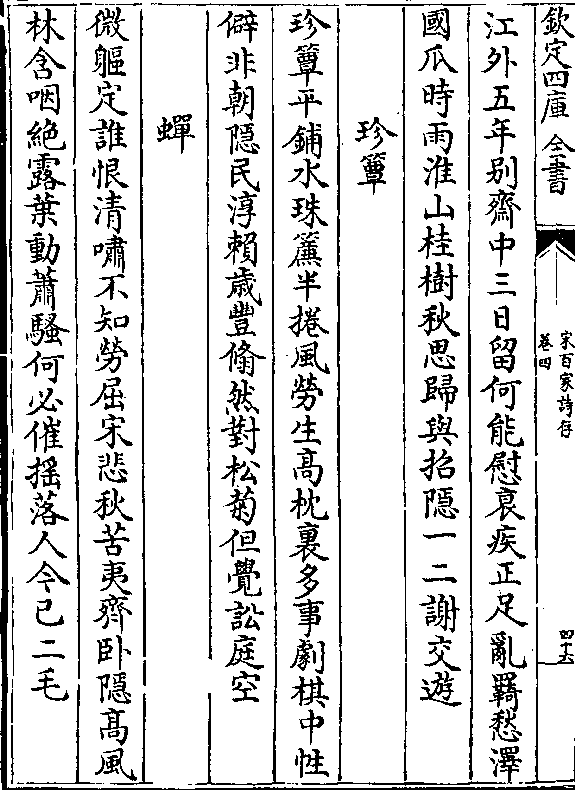 欽定四庫全書
宋百家詩存
卷四
四十六
江外五年别齋中三日留何能慰衰疾正足亂羇愁澤
國瓜時雨淮山桂樹秋思歸與招隱一二謝交遊
珍簟
珍簟平鋪水珠簾半捲風勞生髙枕裏多事劇棋中性
僻非朝隱民淳賴歲豐翛然對松菊但覺訟庭空
蟬
微軀定誰恨清嘯不知勞屈宋悲秋苦夷齊卧隱髙風
林含咽絶露葉動蕭騷何必催揺落人今已二毛